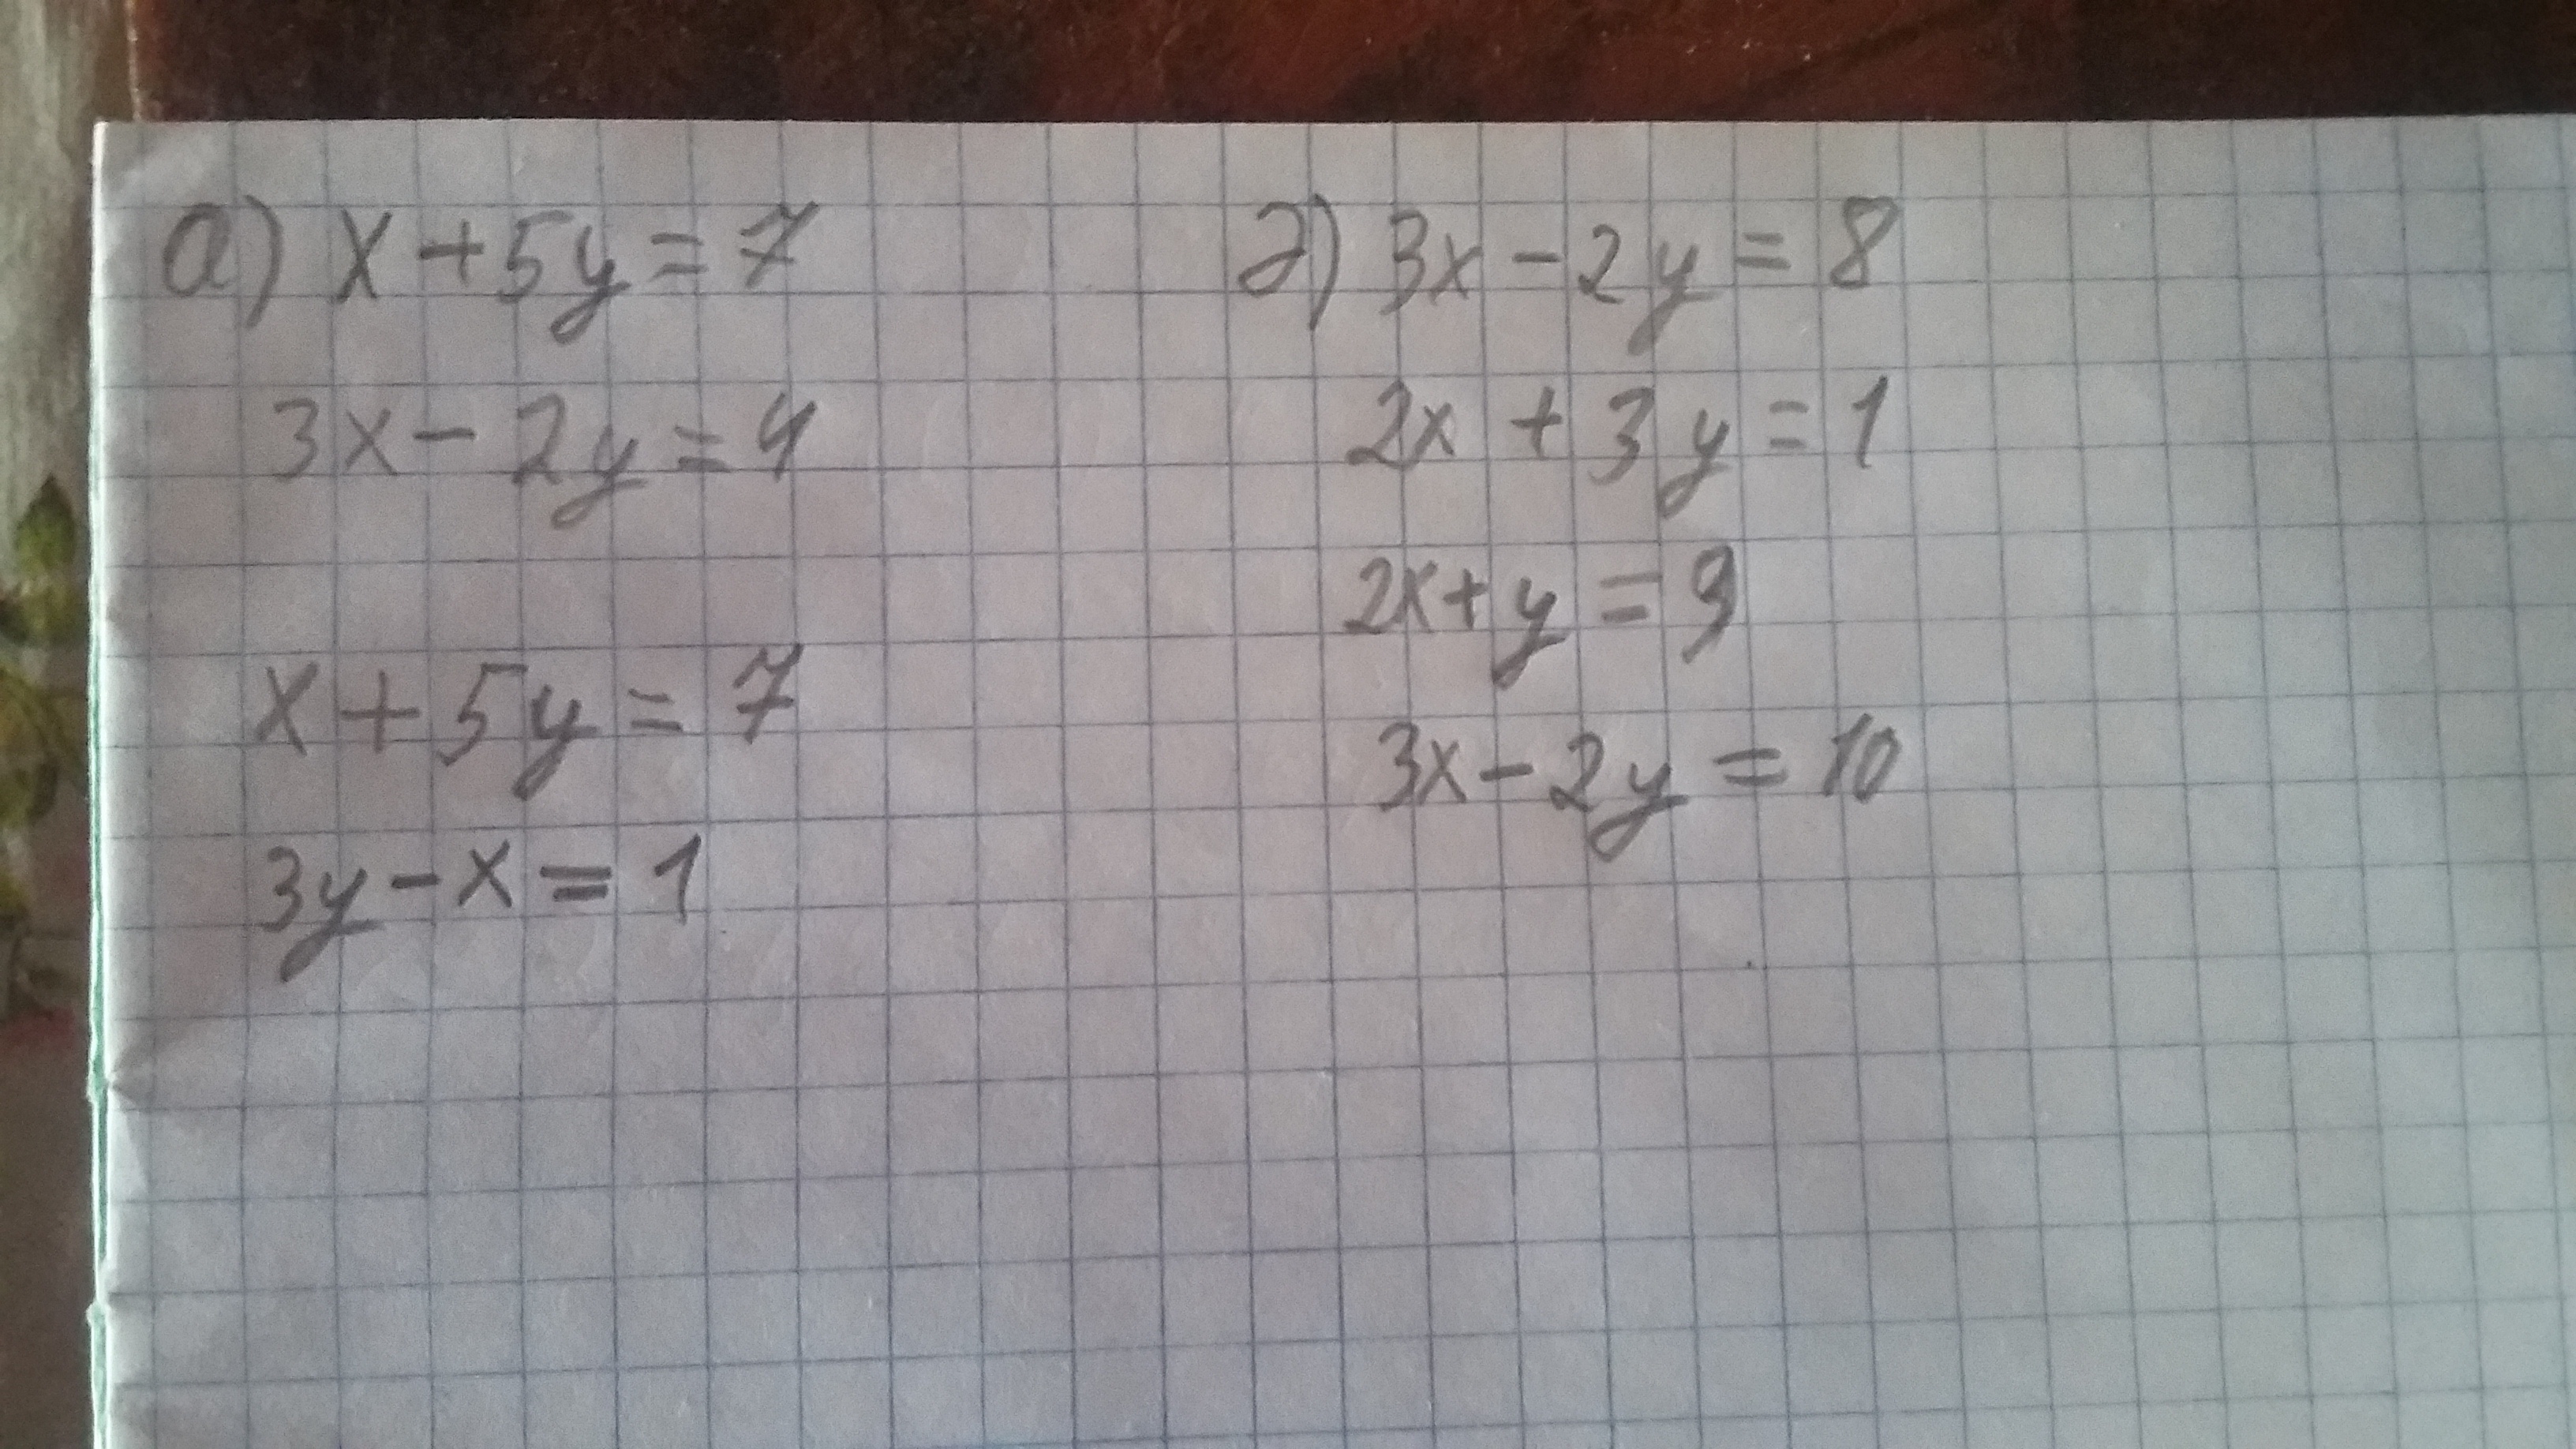 а) x + 5y = 7
3x - 2y = 4
x + 5y = 7
3y - x = 1
д) 3x - 2y = 8
2x + 3y = 1
2x + y = 9
3x - 2y = 10